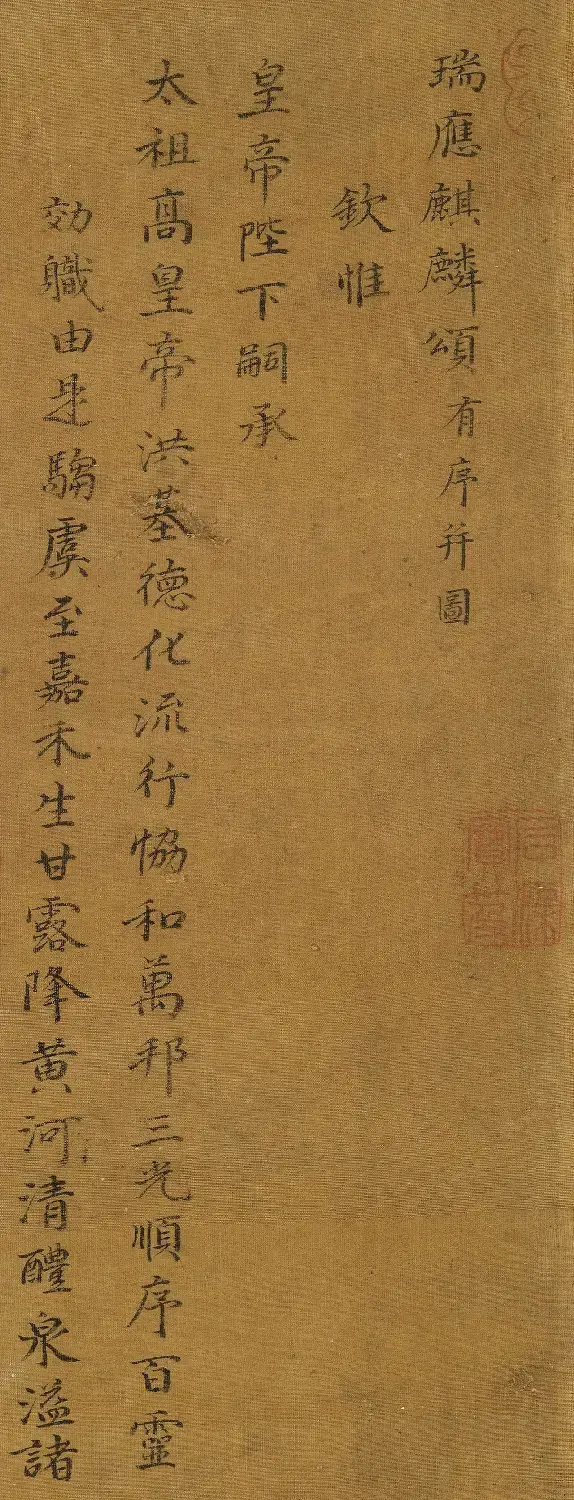 瑞應麒麟頌有序并圖
欽惟
皇帝陛下嗣承
太祖高皇帝洪基德化流行恊和萬邦三光順序百靈
効職由是騶虞至嘉禾生甘露降黄河清醴泉溢諸